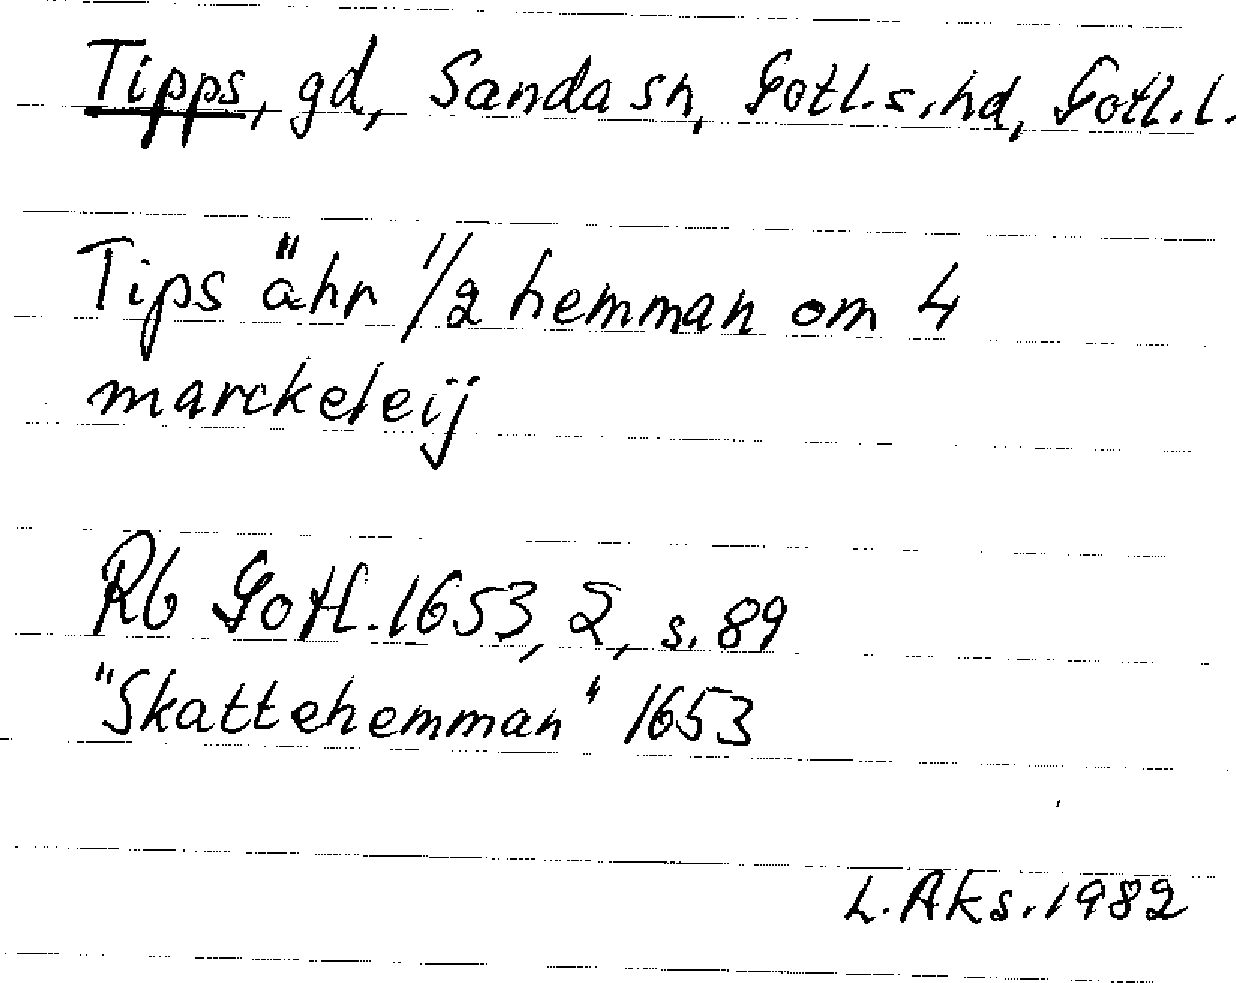 Tipps, gd, Sanda sn, Gotl.s.hd, Gotl.l.
Tips ähr 1/2 hemman om 4
marckeleij
Rb Gotl. 1653, 2, s. 89
"Skattehemman" 1653
L. Aks. 1982